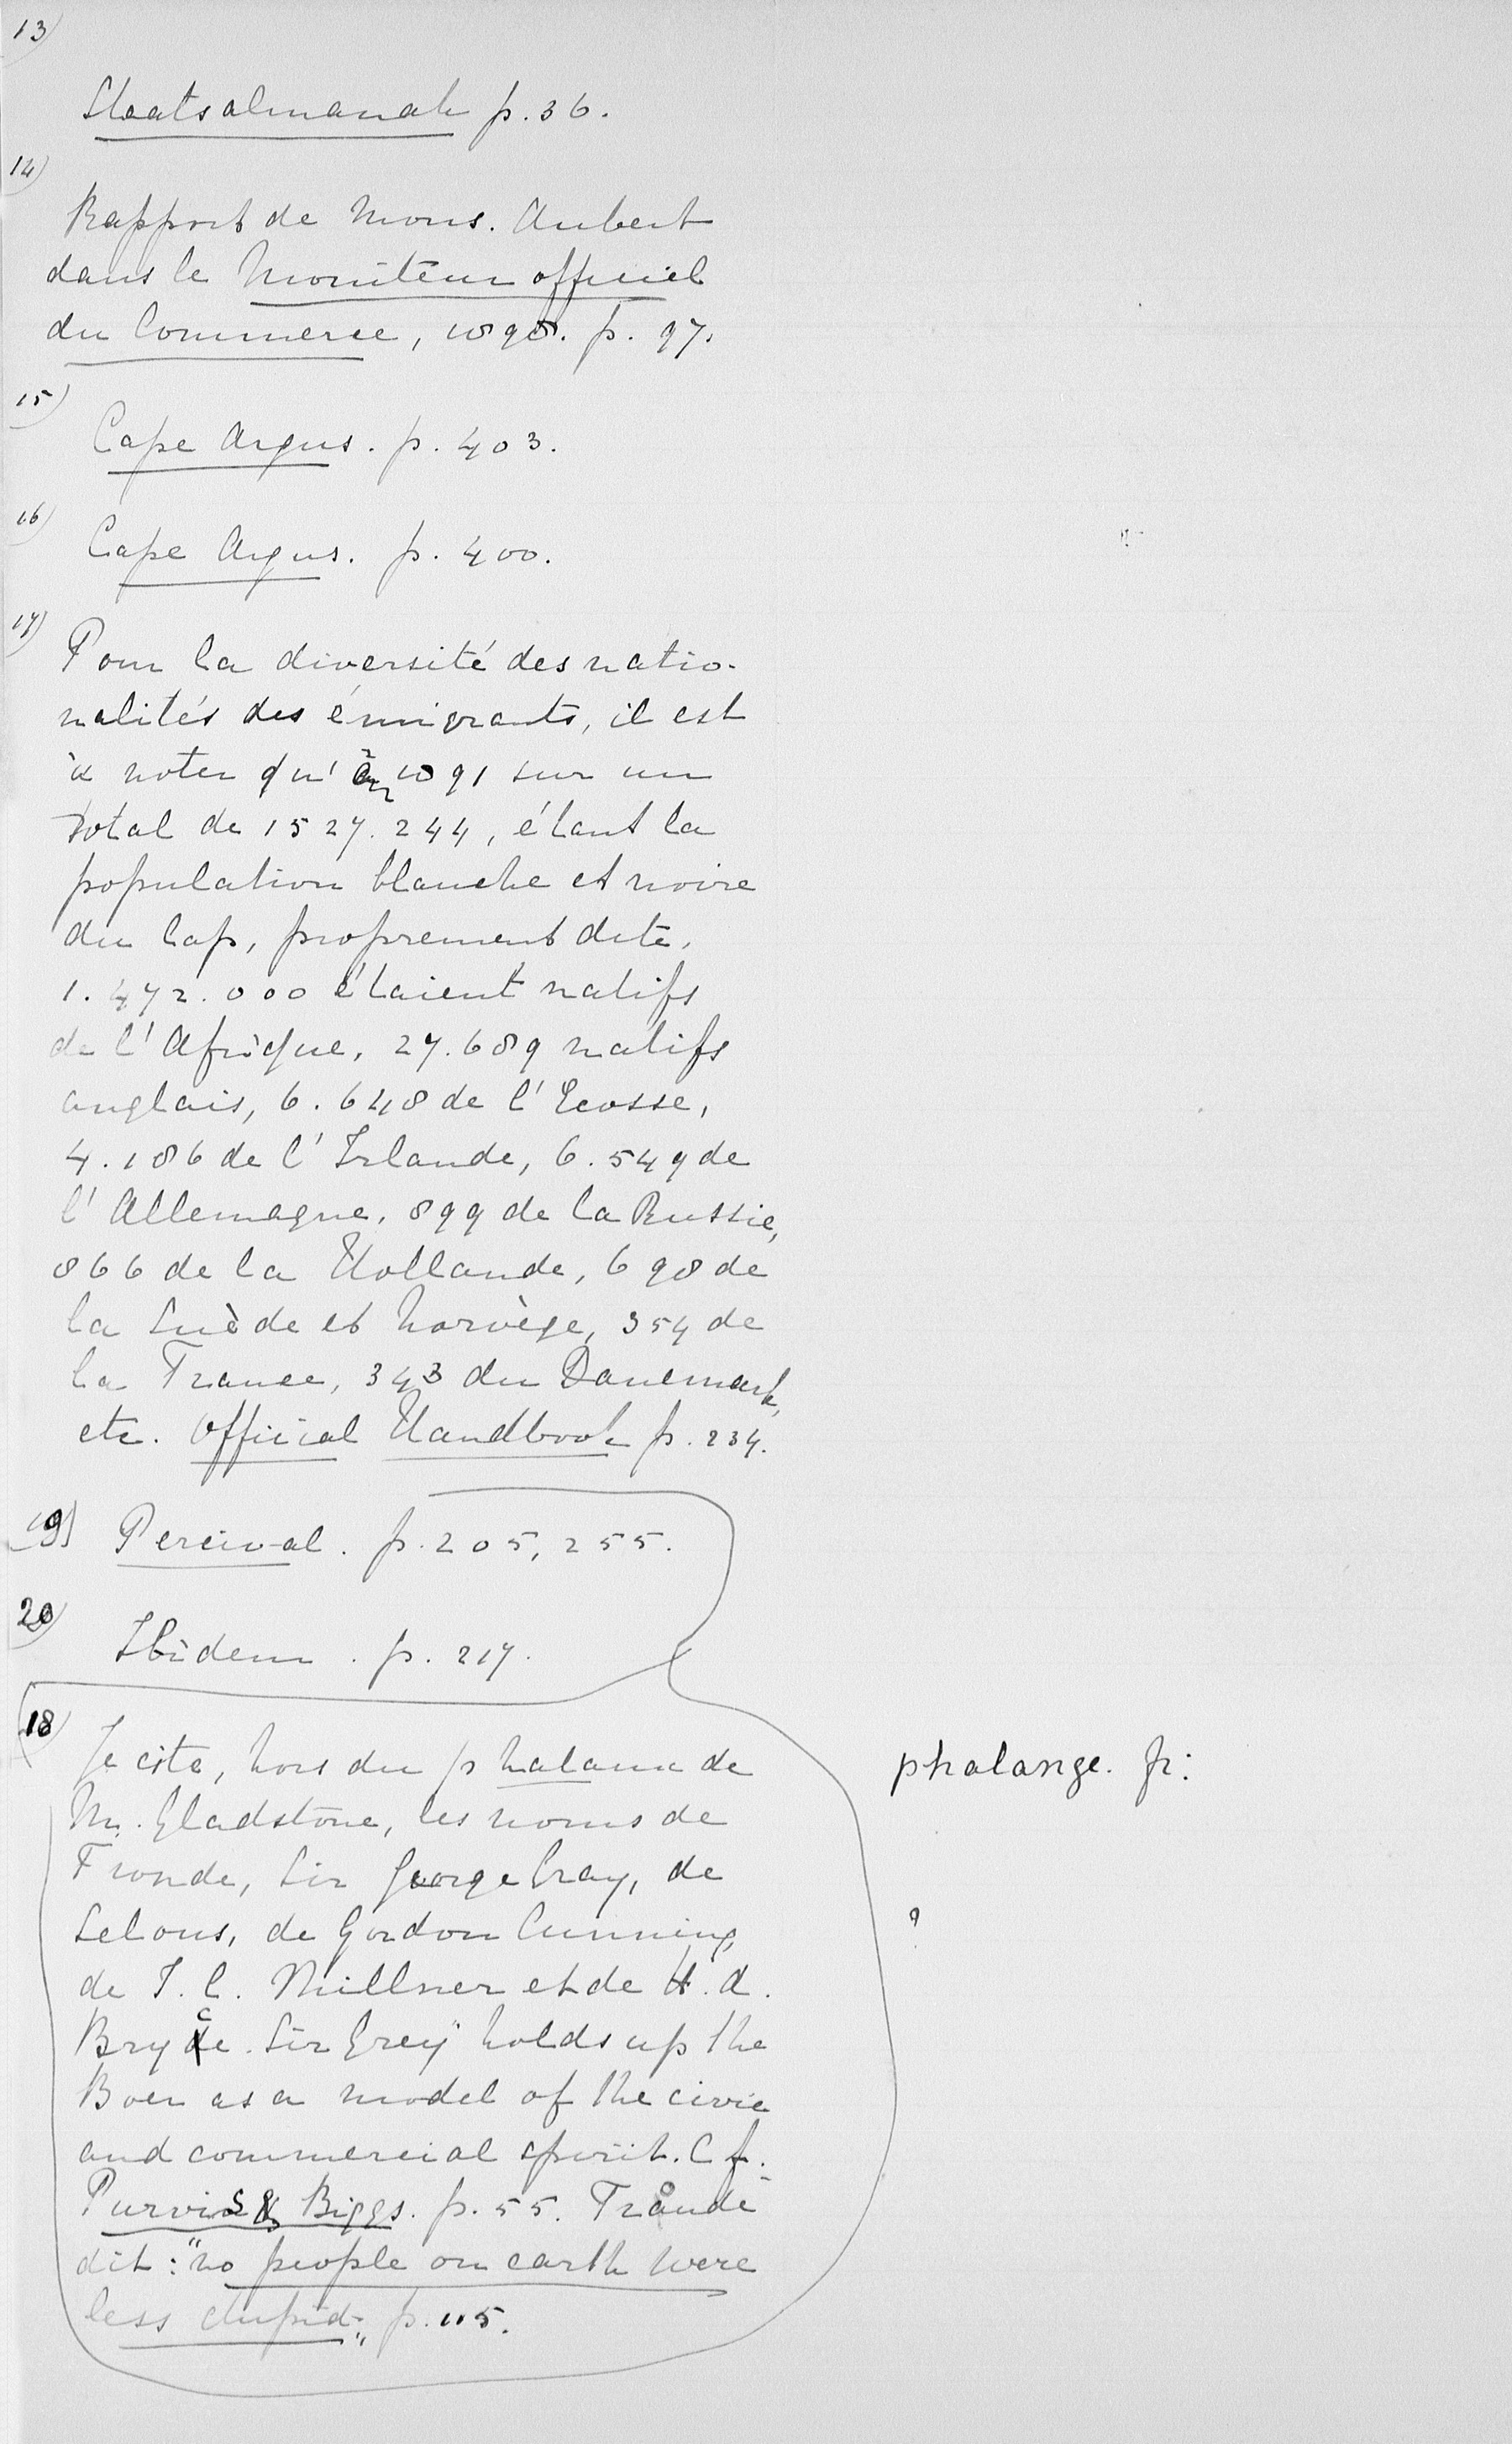 13)
Staatsalmanak p. 36.
14)
Rapport de Mons. Aubert
dans le Moniteur officiel
du Commerce, 1898. p. 97.
15)
Cape Argus. p. 403.
16)
Cape Argus. p. 400.
17)
Pour la diversité des natio-
nalités des émigrants, il est
à noter qu'en 1891 sur un
total de 1527.244, étant la
population blanche et noire
du Cap, proprement dite,
1.472.000 étaient natifs
de l'Afrique, 27.689 natifs
anglais, 6.648 de l'Ecosse,
4.186 de l'Irlande, 6.549 de
l'Allemagne, 899 de la Russie,
866 de la Hollande, 698 de
la Suède et Norvège, 354 de
la France, 343 du Danemark,
etc. Official Handbook p. 234.
19) Percival. p. 205, 255.
20)
Ibidem. p. 217.
18)
Je cite, hors du phalanx de
M. Gladstone, les noms de
Froude, Sir George Gray, de
Selous, de Gordon Cumming,
de J. C. Millner et de H. A.
Bryce. Sir Grey "holds up the
Boer as a model of the civic
and commercial spirit. Cf.
Purvis & Biggs. p. 55. Froude
dit: "no people on earth were
less stupid", p. 115.
phalange. fr:
?